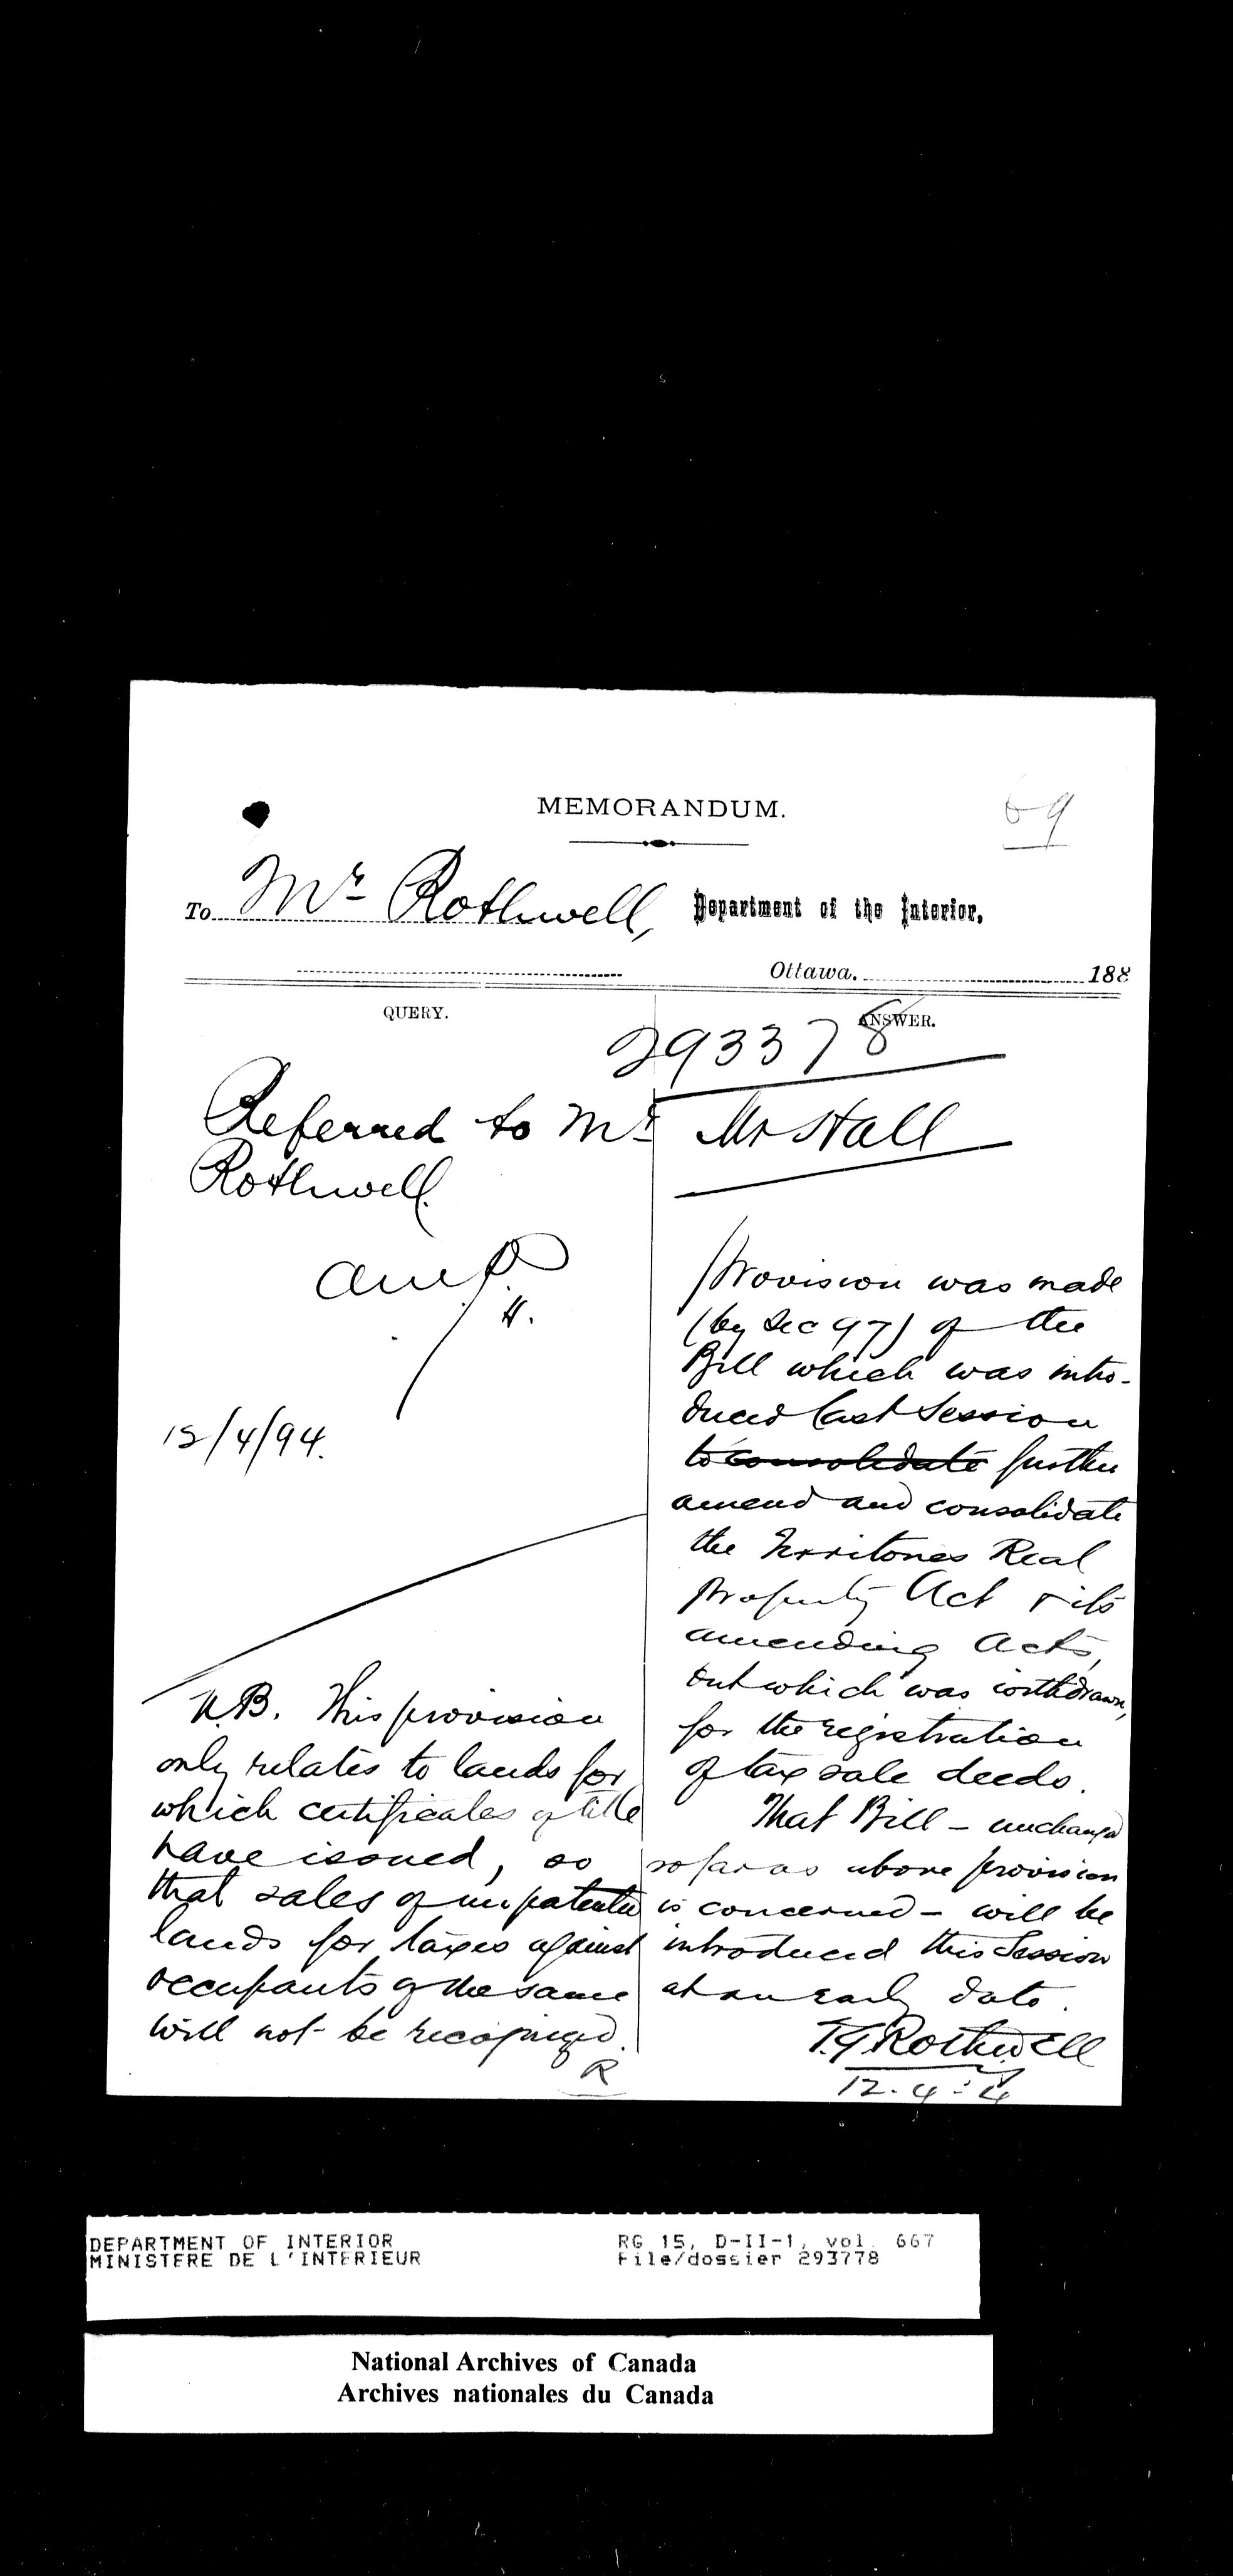 MEMORANDUM.
69
To Mr Rothwell, Department of the Interior,
Ottawa. 188
QUERY.
ANSWER.
293378
Referred to Mr
Rothwell.
H.
12/4/94.
N.B. This provision
only relates to lands for
which certificates of title
have issued, so
that sales of unpatented
lands for taxes against
occupants of the same
will not be recognized.
R
Mr Hall
Provision was made
(by Sec 97) of the
Bill which was intro-
duced last Session
to consolidate further
amend and consolidate
the Territories Real
Property Act & its
amending Acts,
but which was withdrawn,
for the registration
of tax sale deeds.
That Bill – unchanged
so far as above provision
is concerned – will be
introduced this Session
at an early date.
T.G. Rothwell
12.4.
DEPARTMENT OF INTERIOR
MINISTERE DE L'INTERIEUR
RG 15, D-II-1, vol. 667
File/dossier 293778
National Archives of Canada
Archives nationales du Canada